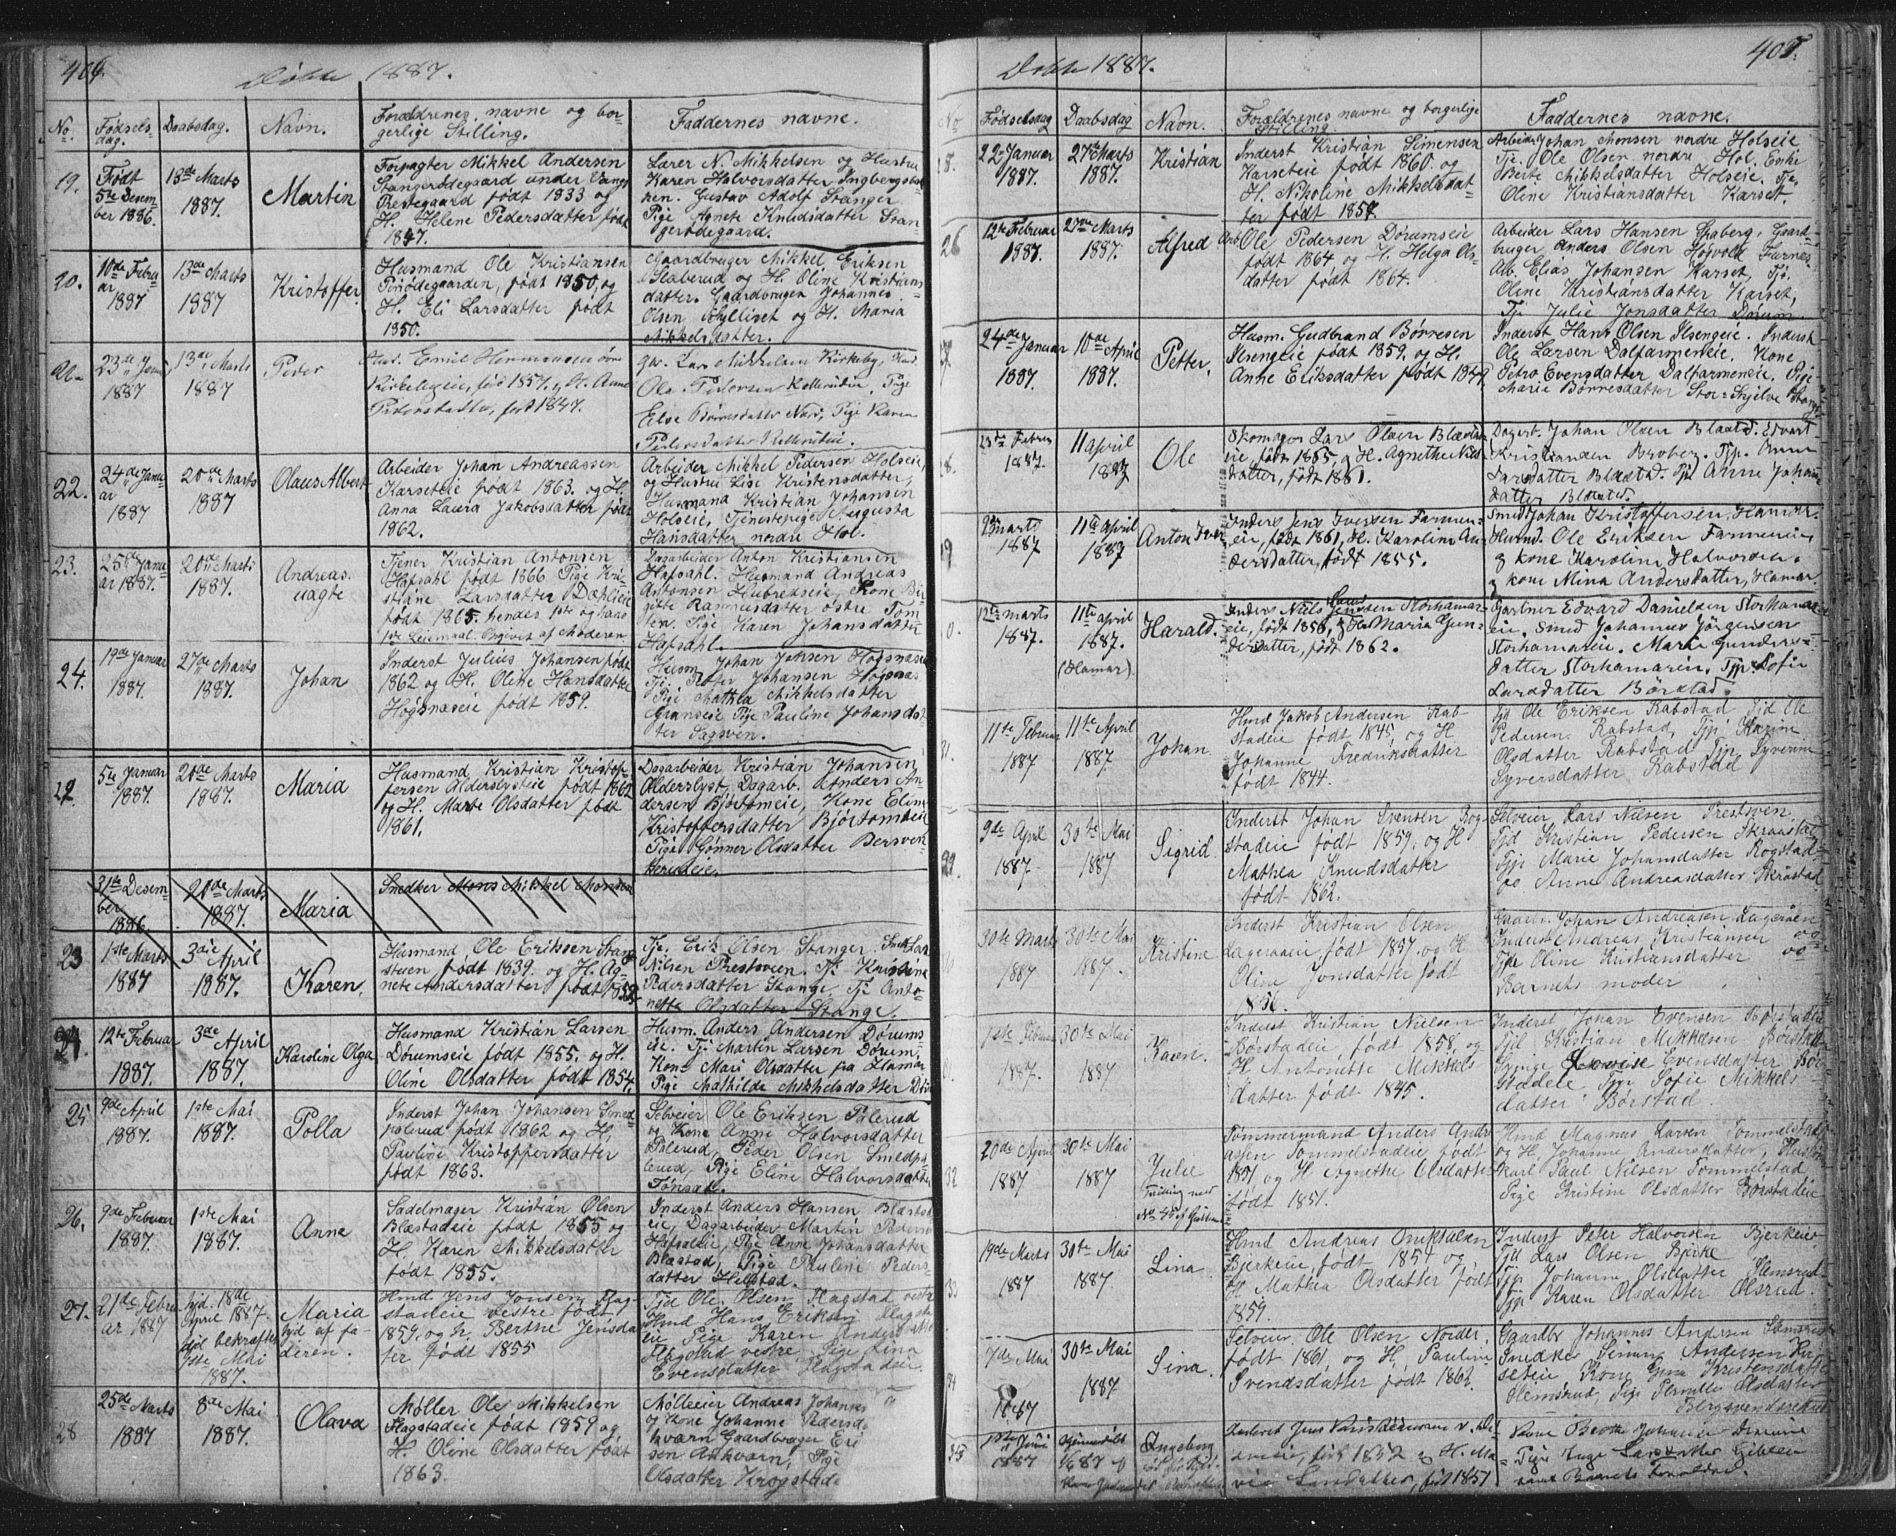 406.
Døbte 1887.
No. Fødselsdag. Daabsdag. Navn. Forældrenes navne og borgerlige Stilling. Faddernes navne.
19. Født 5te Desember 1886. 13de Marts 1887. Martin
Forpagter Mikkel Andersen
Stangerødegaard under Vangs
Prestegaard født 1833 og
H. Helene Pedersdatter født
1847.
Lærer N. Mikkelsen og Hustru
Karen Halvorsdatter Ingbergs
Gustav Adolf Stanger
Pige Agnete Knudsdatter Stan
gerødegaard.
20. 10de Februar 1887 13de Marts 1887 Kristoffer
Husmand Ole Kristiansen
født 1850, og
H. Eli Larsdatter født
1850.
Gaardbruger Mikkel Eriksen
Slaberud og H. Oline Kristians
datter. Gaardbruger Johannes
Olsen og H. Maria
Mikkelsdatter.
23de 1887 13de Marts 1887 Peder
Emil Hermansen
født 1857, og H. Anne
Pedersdatter, født 1847.
Lars Mikkelsen Kirkeby,
Ole Pedersen Pige
Else Pige Karen
Pedersdatter
22. 24de Januar 1887 20de Marts 1887 Olaus Albert
Arbeider Johan Andreassen
Karseteie født 1863. og H.
Anna Laura Jakobsdatter født
1862.
Arbeider Mikkel Pedersen Holseie,
og Hustru Lise Kristensdatter,
Husmand Kristian Johansen
Holseie, Tjenestepige Augusta
Hansdatter nordre Hol.
23. 25de Januar 1887. 20de Marts 1887. Andreas. uægte
Tjener Kristian Antonsen
Hafsahl født 1866 Pige Kri-
stiane Larsdatter Dæhlieie
født 1865. hendes 1ste og hans
1ste Leiermaal. Opgivet af Moderen
Dagarbeider Anton Kristiansen
Hafsahl. Husmand Andreas
Antonsen Hubredseie, Kone Bir
gitte Rasmusdatter østre Tom
ten. Pige Karen Johansdatter
Hafsahl.
24. 19de Januar 1887. 27de Marts 1887. Johan
Inderst Julius Johansen født
1862 og H. Oline Hansdatter
Høgsnæseie født 1859.
Husm. Johan Jahsen Høgsnæseie
Johansen Høgsnæs
Pige Mathea Mikkelsdatter
Granseie Pige Pauline Johansdat
ter Sagsven.
22. 5te Januar 1887. 20de Marts 1887. Maria
Husmand Kristian Kristof-
fersen Alderslysteie født 1862
og H. Marte Olsdatter født
1861.
Dagarbeider Kristian Johansen
Alderslyst, Dagarb. Anders An
dersen Bjørtomeie, Kone Eline
Kristoffersdatter Bjørtomeie
Pige Gonner Olsdatter Bersven
henseie.
31te Desember 1886. 20de Marts 1887. Maria
Snedker Mons Mikkel Monsen
23 1ste Marts 1887 3die April 1887. Karen.
Husmand Ole Eriksen Stang
steen født 1839. og H. Ag-
nete Andersdatter født
Tj. Erik Olsen Stanger.
Nilsen Prestsveen. Pige Kristine
Pedersdatter Stange, Tj. Anto-
nette Olsdatter Stange.
24. 12te Februar 1887. 3de April 1887. Karoline Olga
Husmand Kristian Larsen
Dørumseie født 1855. og H.
Oline Olsdatter født 1854.
Husm. Anders Andersen Dørums
eie. Tj. Martin Larsen Dørum.
Kone Mari Olsdatter fra Hamar
Pige Mathilde Mikkelsdatter
25. 9de April 1887. 1ste Mai 1887. Polla
Inderst Johan Johansen Smed
palerud født 1862 og H.
Pauline Kristoffersdatter
født 1863.
Selveier Ole Eriksen Palerud
og Kone Anne Halvorsdatter
Palerud, Peder Olsen Smedpa
lerud, Pige Eline Halvorsdatter
Tønsæt.
26. 9de Februar 1887. 1ste Mai 1887. Anne
Sadelmager Kristian Olsen
Blæstadeie født 1855 og
H. Karen Mikkelsdatter
født 1855.
Inderst Anders Hansen Blæstad
eie, Dagarbeider Martin Peders
Hafsaleie, Pige Anne Johansdatter
Blæstad, Pige Pauline Peders-
datter Helstad.
27. 21de Februar 1887 hjd. 18de April 1887. hjd bekræftet 1ste Mai 1887. Maria hjd af faderen.
Hmd Jens Jonsen Flag-
stadeie vestre født
1859. og H. Berthe Jensdat
ter født 1855
Tjd Ole Olsen Flagstad vestre
Hmd Hans Eriksen Flagsta
eie Pige Karen Andersdatter
Flagstad vestre Pige Lina
Evensdatter Flagstadeie.
28 25de Marts 1887 8de Mai 1887. Olava
Møller Ole Mikkelsen
Flagstadeie født 1859 og
H. Oline Olsdatter født
1863.
Mølleeier Andreas Johanses
og Kone Johanne Pedersd
kværn Gaardbruger Eri
sen Aakværn, Pige
Olsdatter Krogstad
407.
Døbte 1887.
No Fødselsdag Daabsdag Navn. Forældrenes navne og borgerlige Stilling. Faddernes navne.
22 Januar 1887. 27de Marts 1887. Kristian
Inderst Kristian Simensen
Karseteie født 1860 og
H. Nikoline Mikkelsdat-
ter født 1857.
Arbeider Johan Monsen nordre Holseie
Tje. Ole Olsen nordre Hol. Enke
Berte Mikkelsdatter Holseie, Tje.
Oline Kristiansdatter Karset.
26 12te Februar 1887. 27de Marts 1887. Alfred
Arb. Ole Pedersen Dørumseie
født 1864 og H. Helga Ols-
datter født 1864.
Arbeider Lars Hansen Gaaberg, Gaard
bruger Anders Olsen Højvold Furnes
Arb. Elias Johansen Karset, Tj.
Oline Kristiansdatter Karset,
Tje Julie Jonsdatter Dørum.
24de Januar 1887. 10de April 1887. Petter.
Husm. Gudbrand Børresen
Ilsengeie født 1859. og H.
Anne Eriksdatter født 1849
Inderst Hans Olsen Ilsengeie. Inderst
Ole Larsen Dalfarmeneie. Kone
Petro Evensdatter Dalfarmeneie. Pige
Marie Børresdatter Stor-Skjelve Stange
23de Febru 1887. 11 April 1887 Ole
Skomager Lars Olsen Blæstad
eie, født 1855 og H. Agnethe Niels
datter, født 1861.
Dagarb. Johan Olsen Blæstd. Edvart
Kristiansen Broberg. Tjp. Anne
Larsdatter Blæstad. Tjp Anne Johans
datter Blæstad.
marts 1887 11te April 1887 Anton Iver
Inders Jens Iversen Farmen-
eie, født 1861, H. Karoline An-
dersdatter, født 1855.
Smed Johan Kristoffersen, Hamar
Husmd. Ole Eriksen Farmeneie
og kone Karoline Halvorsen.
og kone Mina Andersdatter, Hamar.
12te marts 1887. 11te April 1887. (Hamar) Harald.
Inders Niels Jenssen Storhamar-
eie, født 1856, og H. Maria Gun-
dersdatter, født 1862.
Gartner Edvard Danielsen Storhamar
eie. Smed Johannes Jørgensen
Storhamareie. Marie Gunders-
datter Storhamareie. Tjp. Sofie
Larsdatter Børstad.
11te Februar 1887 11te April 1887 Johan
Hmd Jakob Andersen Rab-
stadeie født 1845, og H.
Johanne Fredriksdatter
født 1844.
Tjd Ole Eriksen Rabstad Tjd Ole
Pedersen Rabstad, Tjp Karine
Olsdatter Rabstad Tjp Syverine
Syversdatter Rabstad
9de April 1887. 30te Mai 1887 Sigrid
Inderst Johan Svensen Rog-
stadeie født 1859, og H
Mathea Knudsdatter
født 1862.
Selveier Lars Nilsen Prestsven
Tjd Kristian Pedersen Skraastad
Tjp Marie Johansdatter Rogstad
Anne Andreasdatter Skrastad
30te Marts 1887 30te Mai 1887. Kristine
Inderst Kristian Olsen
Lageraaeie født 1857, og H
Oline Jonsdatter født
1856.
Gaardb. Johan Andreasen Lageraaen
Inderst Andreas Kristiansen
Tjp Oline Kristiansdatter
Barnets moder
1ste Februar 1887. 30te Mai 1887 Karen.
Inderst Kristian Nielsen
Børstadeie, født 1858, og
H Antonette Mikkels
datter født 1845.
Inderst Johan Evensen Børstadeie
Tjd Kristian Mikkelsen Børstad
Pige Lovise Evensdatter Bør-
stadeie Tjp Sofie Mikkels
datter Børstad.
32 20de April 1887 30te Mai 1887 Julie
Tvilling med No 45 af Guttene
Tømmermand Anders Andre
asen Tommelstadeie født
1851, og H Agnethe Olsdatter
født 1851.
Hmd Magnus Larsen Tommelstad
og H. Johanne Andersdatter,
karl Paul Nilsen Tommelstad
Pige Kristine Olsdatter Børstadeie
33 19de Marts 1887 30te Mai 1887 Lina
Hmd Andreas
Bjerkeeie, født 1854 og
H Mathea Olsdatter født
1859.
Inderst Peter Halvorsen Bjerkeeie
Tjd Lars Olsen Bjerke
Tjp Johanne Olsdatter Slemsrud
Tjp Karen Olsdatter Olsrud.
34 7de Mai 1887 30te Mai 1887. Sina
Selveier Ole Olsen Nordli,
født 1861, og H, Pauline
Svendsdatter født 1862.
Gaardbr Johannes Andersen Slemsrud
Snedker Simen Andersen
seteie, Kone Kristensdatter
Slemsrud, Pige Pernille Olsdatter
Bergsvendserud
35 1887 Hjemmedøbt Ingeborg
Inderst Jens
født 1852 og H. Ma-
rie Larsdatter, født 1857
Kone Berthe Johanne
Pige Inga Larsdatter
samt Barnets Forældre.